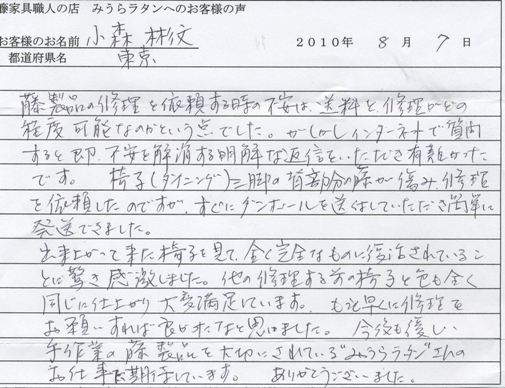 藤家具職人の店　みうらラタンへのお客様の声
お客様のお名前 小森 林文 2010年 8月 7日
都道府県名 東京
藤製品の修理を依頼する時の不安は、送料と、修理がどの
程度可能なのかという点でした。がしかしインターネットで質問
すると即、不安を解消する明解な返信をいただき有難かった
です。 椅子(ダイニング)三脚の背部分の藤が傷み、修理
を依頼したのですが、すぐにダンボールを送付していただき簡単に
発送できました。
出来上がって来た椅子を見て、全く完全なものに復活されているこ
とに驚き感激しました。他の修理する前の椅子と色も全く
同じに仕上がり大変満足しています。もっと早くに修理を
お願いすれば良かったなと思いました。 今後も優しい
手作業の藤製品を大切にされている"みうらラタン"さんの
お仕事に期待しています。 ありがとうございました。